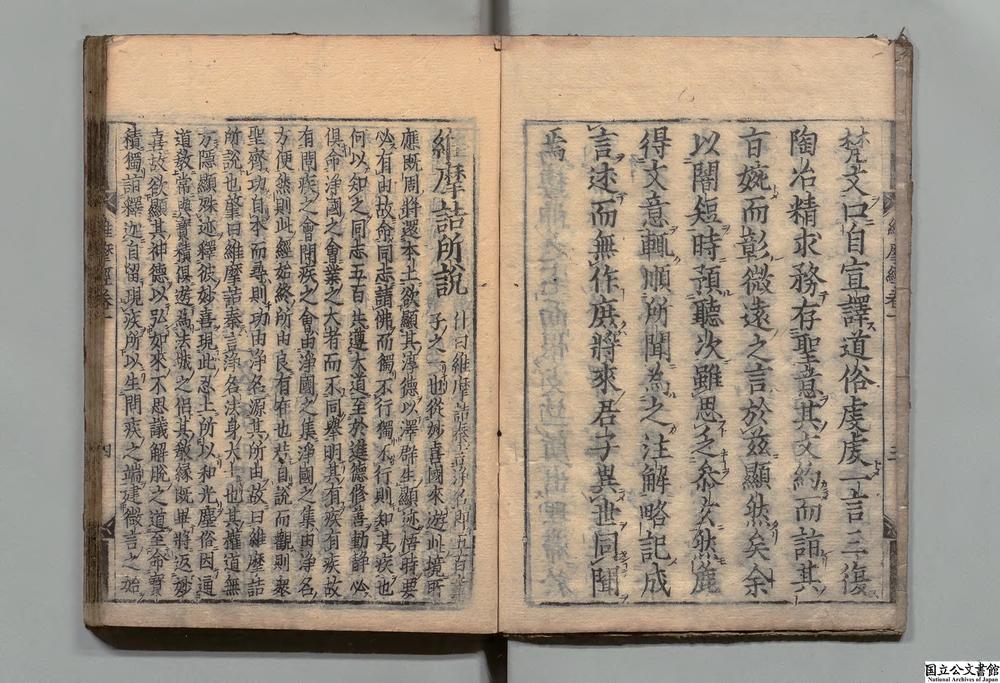 梵文口自宣譯道俗虔虔一言三復
陶冶精求務存聖意其文約而詣其
旨婉而彰微遠之言於茲顯然矣余
以闇短時預聽次雖思乏參玄然麁
得文意輒順所聞為之注解略記成
言述而無作庶將來君子異世同聞
維摩經卷一
三
維摩詰所說
什曰維摩詰秦言淨名即五百童
子之一也從妙喜國來遊此境所
應既周將還本土欲顯其淳德以澤群生顯迹悟時要
必有由故命同志詣佛而獨不行獨不行則知其疾也
何以知之同志五百共遵大道至於進德修善動靜必
俱命淨國之會業之大者而不同舉明其有疾有疾故
有問疾之會問疾之會由淨國之集淨國之集由淨名
方便然則此經始終所由良有在也若自說而觀則眾
聖齊功自本而尋則功由淨名源其所由故曰維摩詰
所說也肇曰維摩詰秦言淨名法身大士也其權道無
方隱顯殊迹釋彼妙喜現此忍土所以和光塵俗因通
道教常與寶積俱遊為法城之侶其教緣既畢將返妙
喜故欲顯其神德以弘如來不思議解脫之道至命寶
積獨詣釋迦自留現疾所以生問疾之端建微言之始
維摩經卷一
四
国立公文書館
National Archives of Japan